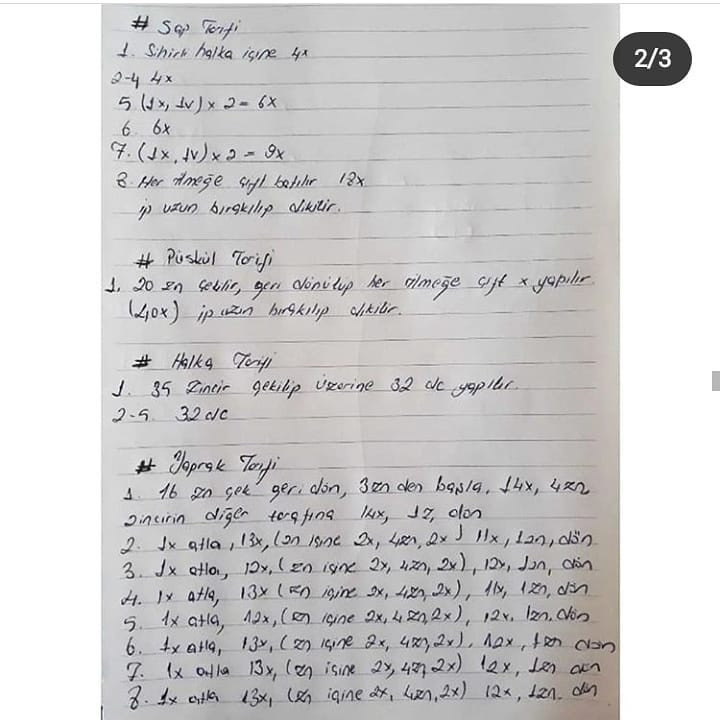 2/3
# Sap Tarifi
1. Sihirli halka içine 4x
2-4 4x
5. (1x, 1v) x 2 = 6x
6. 6x
7. (1x, 1v) x 2 = 9x
8. Her ilmeğe çift batılır 18x
ip uzun bırakılıp dikilir.
# Püskül Tarifi
1. 20 zn çekilir, geri dönülüp her ilmeğe çift x yapılır.
(40x) ip uzun bırakılıp dikilir.
# Halka Tarifi
1. 35 zincir çekilip üzerine 32 dc yapılır.
2-5. 32 dc
# Yaprak Tarifi
1. 16 zn çek geri dön, 3zn den başla, 14x, 4zn
zincirin diğer tarafına 14x, 1z, dön
2. 1x atla, 13x, (zn içine 2x, 4zn, 2x) 11x, 1zn, dön
3. 1x atla, 12x, (zn içine 2x, 4zn, 2x), 12x, 1zn, dön
4. 1x atla, 13x (zn içine 2x, 4zn, 2x), 11x, 1zn, dön
5. 1x atla, 12x, (zn içine 2x, 4zn, 2x), 12x, 1zn, dön
6. 1x atla, 13x, (zn içine 2x, 4zn, 2x), 12x, 1zn dön
7. 1x atla 13x, (zn içine 2x, 4zn, 2x) 12x, 1zn dön
8. 1x atla 13x, (zn içine 2x, 4zn, 2x) 12x, 1zn. dön